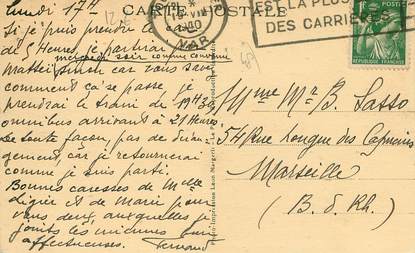 Lundi 17H
CARTE POSTALE
Si je puis prendre le
de 5 heures, je partirai
mercredi soir comme convenu
Matteï sinon car vous savez
comment ça se passe, je
prendrai le train de 19H30
omnibus arrivant à 21 heures.
De toute façon, pas de déran-
gement, car je retournerai
comme je suis parti.
Bonnes caresses de Melle
Ligier et de Marie pour
vous deux, auxquelles je
joins les miennes bien
affectueuses. Fernand
VAR
EST LA PLUS
DES CARRIÈRES
1F
POSTES
RÉPUBLIQUE FRANÇAISE
Mme Mr B. Sasso
54 Rue longue des Capucins
Marseille
(B. d. Rh.)